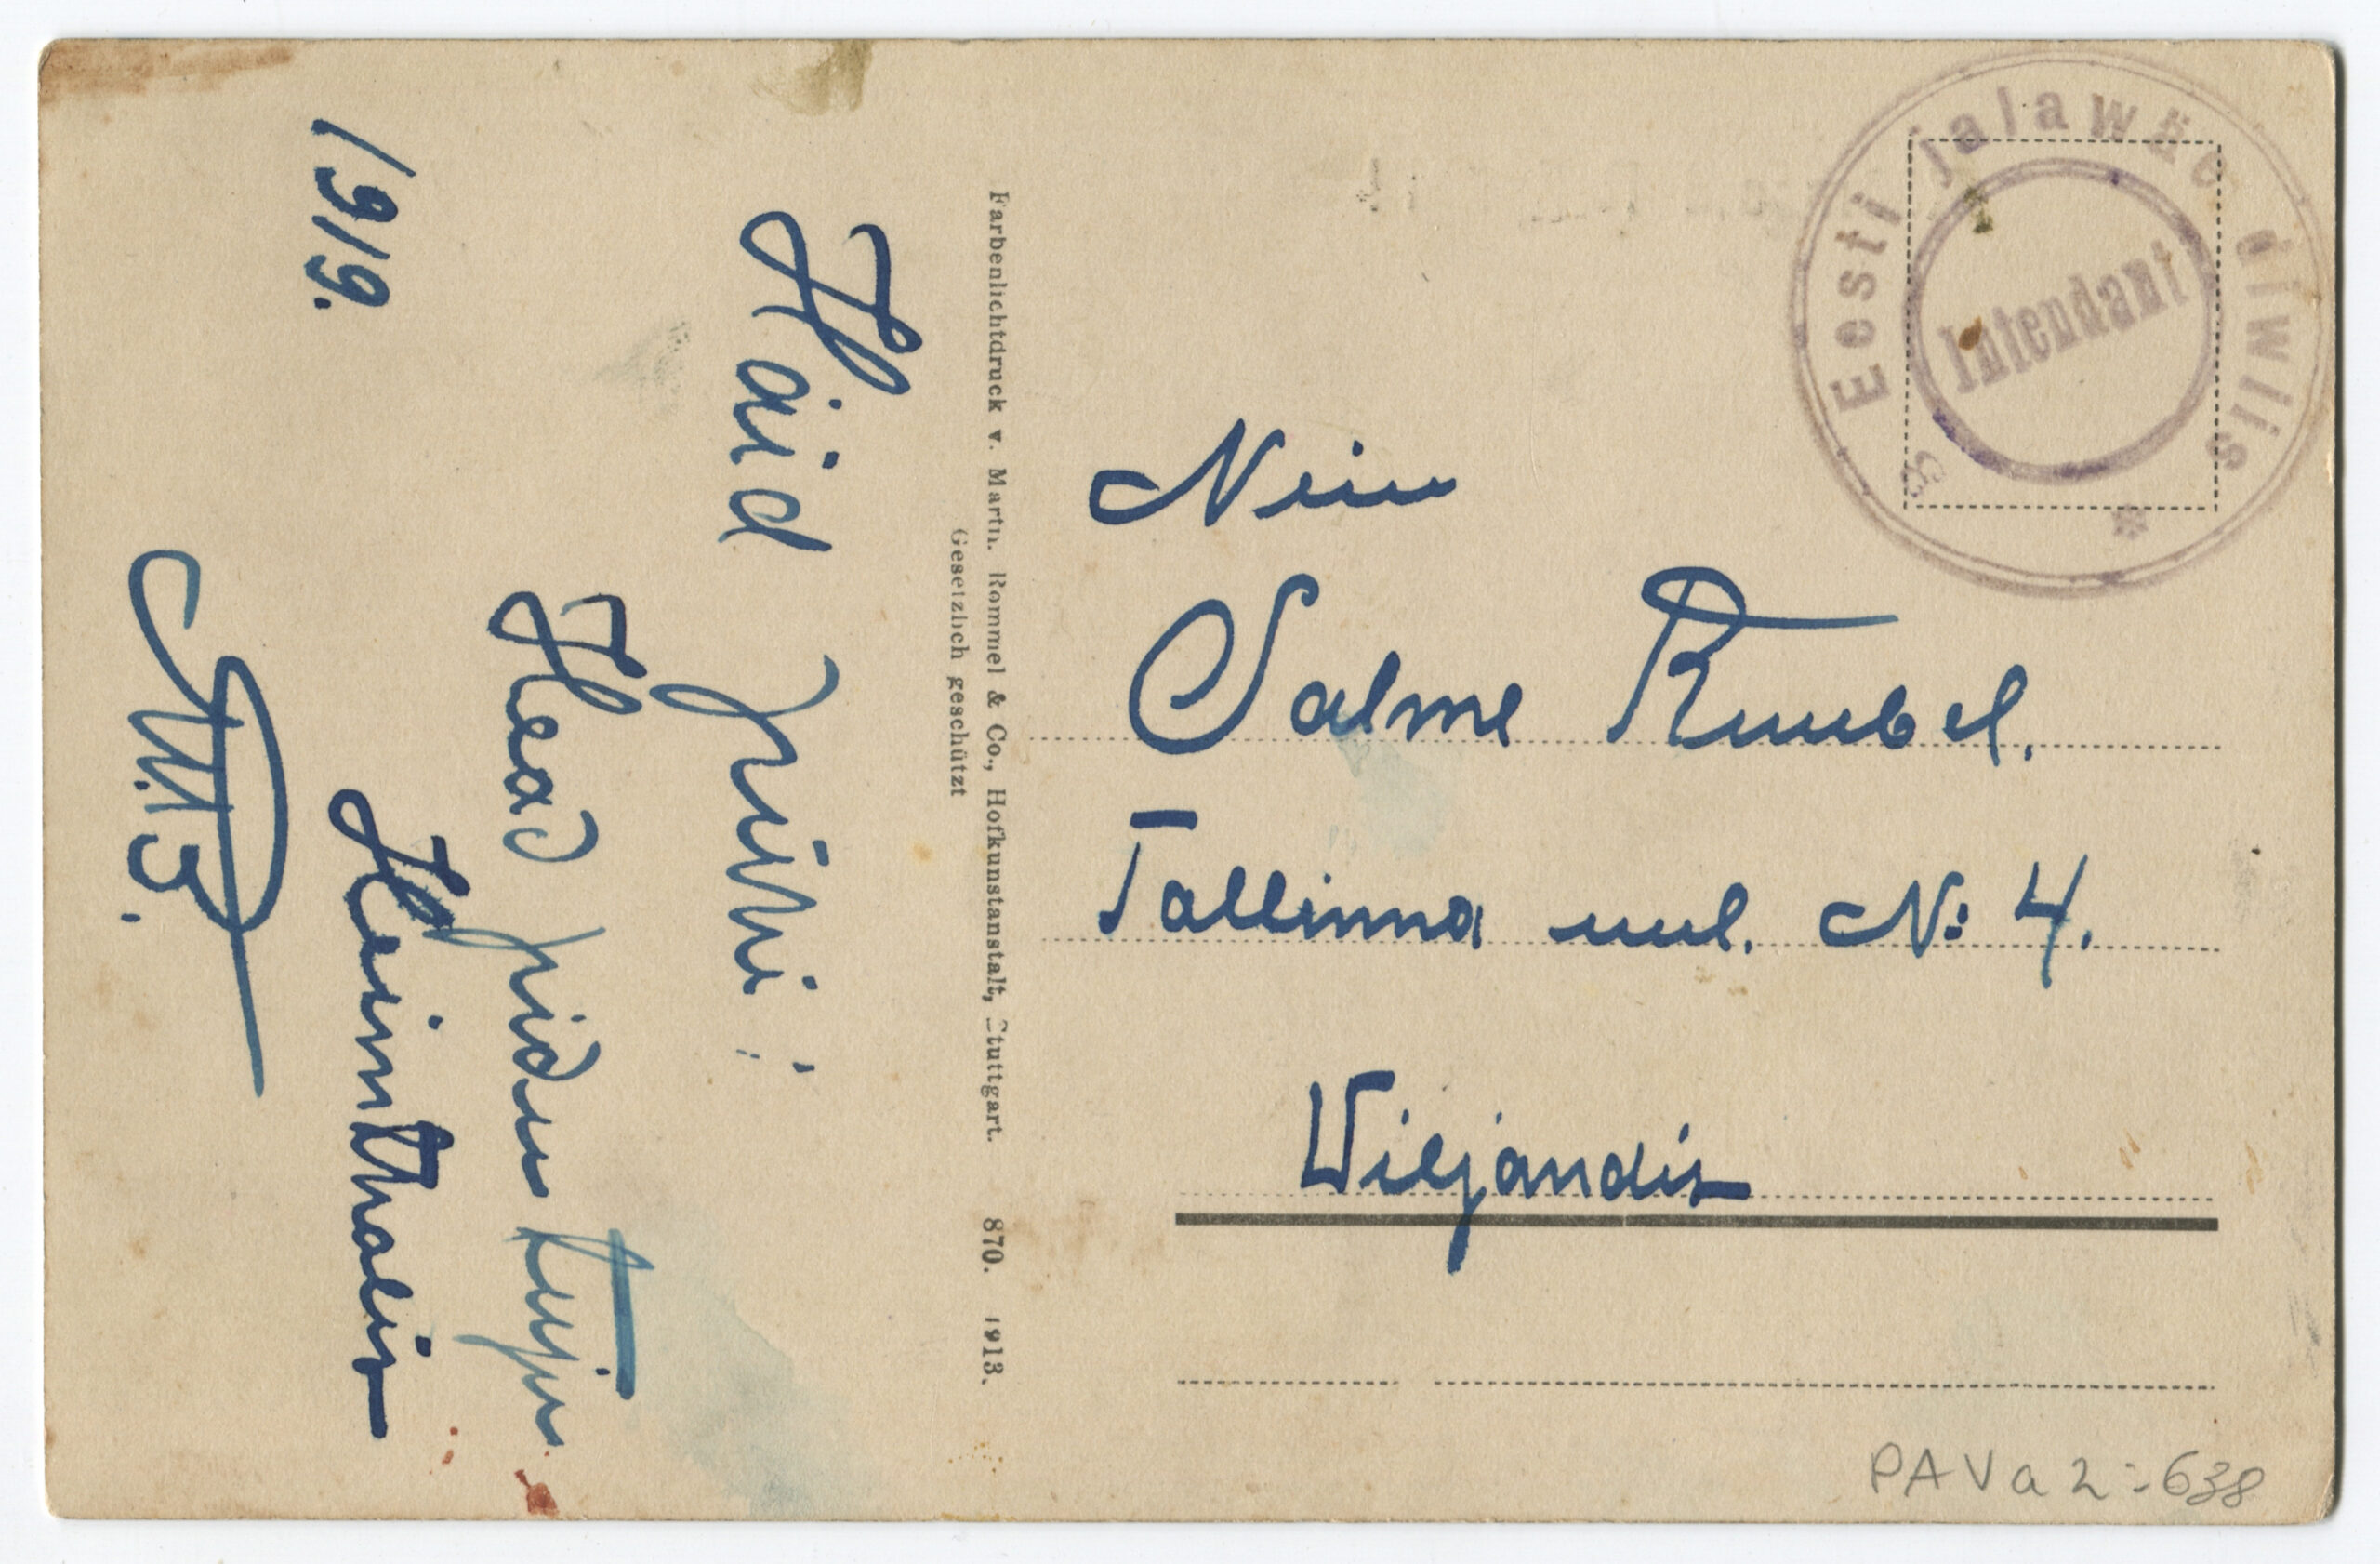 Häid pühi!
Head pidu tuju
Heimthalis
1919.
Farbenlichtdruck v. Martin. Rommel & Co., Hofkunstanstalt, Stuttgart. 870. 1913.
Gesetzlich geschützt
Eesti jalawäe diwiis
Intendant
Neiu
Salme Ruubel.
Tallinna uul. N: 4.
Wiljandis
PAVa2:638